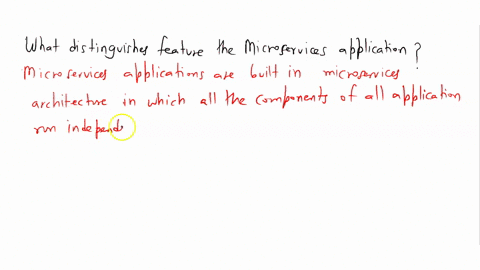 What distinguishes feature the Microservices application?
Microservices applications are built in microservices
architecture in which all the components of all application
run independ